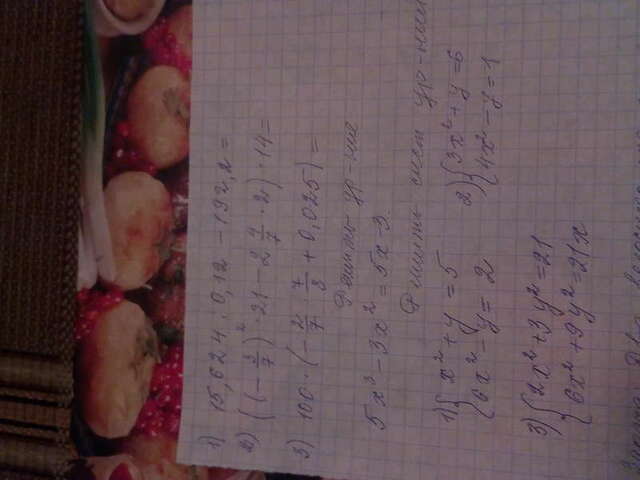 1) 15,624 : 0,12 - 132,2 =
2) ((-2/7)² · 21 - 2 4/7 · 2) · 14 =
3) 100 · (-2/7 · 7/8 + 0,025) =
Решить ур-ние
5x³ - 3x² = 5x - 3
Решить сист ур-ний
1) { x² + y = 5
6x² - y = 2
2) { 3x² + y = 6
4x² - y = 1
3) { 2x² + 3y² = 21
6x² + 9y² = 21x